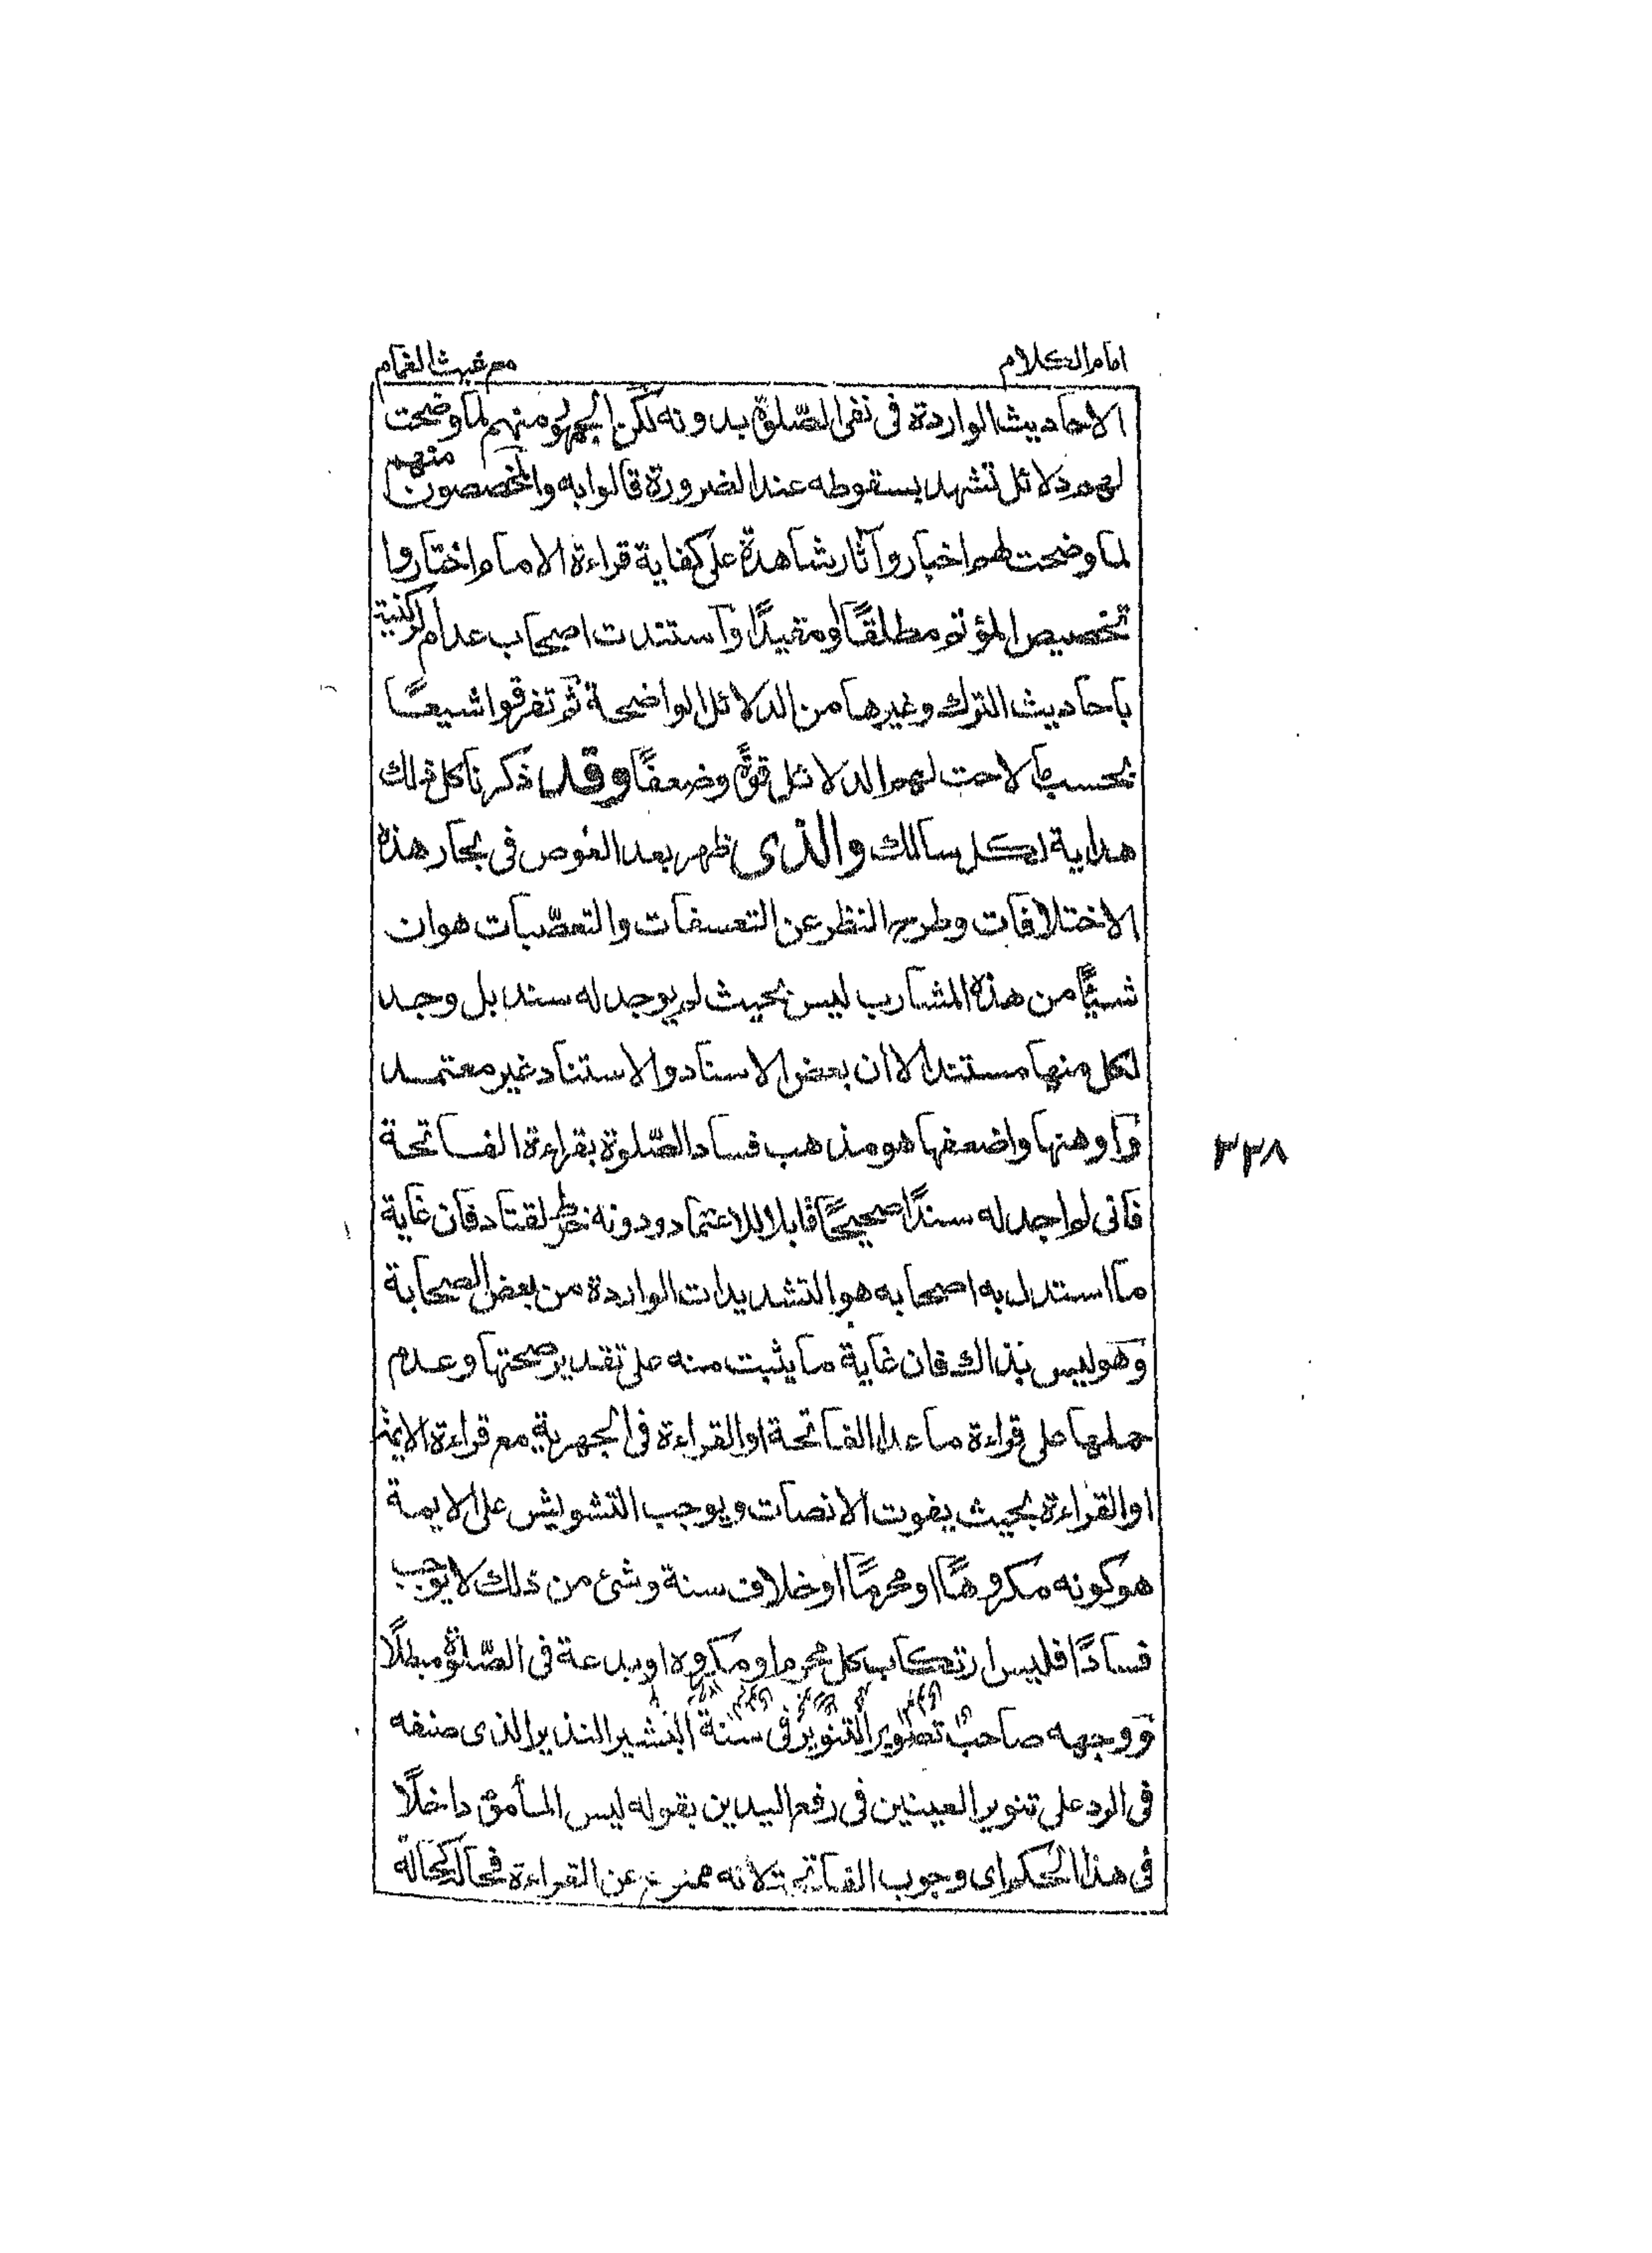 امام الكلام
مع غيث الغمام
الاحاديث الواردة فى نفى الصّلوة بدونه لكن الجمهور منهم لما وضحت
لهم دلائل تشهد بسقوطه عند الضرورة قالوا به والمخصصون منهم
لما وضحت لهم اخبار وآثار شاهدة على كفاية قراءة الامام اختاروا
تخصيص المؤتم مطلقًا او مقيدًا واستندت اصحاب عدم الركنية
باحاديث الترك وغيرها من الدلائل الواضحة ثم تفرقوا شيعًا
بحسب ما لاحت لهم الدلائل قوةً وضعفًا وقد ذكرنا كل ذلك
هداية لكل سالك والذى ظهر بعد الغوص فى بحار هذه
الاختلافات وطرح النظر عن التعسفات والتعصّبات هو ان
شيئًا من هذه المشارب ليس بحيث لم يوجد له سند بل وجد
لكل منها مستند الا ان بعض الاسناد والاستناد غير معتمد
واوهنها واضعفها هو مذهب فساد الصّلوة بقراءة الفاتحة
فانى لم اجد له سندًا صحيحًا قابلا للاعتماد ودونه خرط القتاد فان غاية
ما استدل به اصحابه هو التشديدات الواردة من بعض الصحابة
وهو ليس بذاك فان غاية ما يثبت منه على تقدير صحتها وعدم
حملها على قراءة ما عدا الفاتحة او القراءة فى الجهرية مع قراءة الايمة
او القراءة بحيث يفوت الانصات ويوجب التشويش على الايمة
هو كونه مكروهًا او محرمًا او خلاف سنة وشئ من ذلك لا يوجب
فسادًا فليس ارتكاب كل محرم او مكروه او بدعة فى الصّلوة مبطلًا
ووجهه صاحب تصوير التنوير فى سنة البشير النذير الذى صنفه
فى الرد على تنوير العينين فى رفع اليدين بقوله ليس المأموم داخلًا
فى هذا الحكم اى وجوب الفاتحة لانه ممنوع عن القراءة فحاله كحالة
٣٣٨